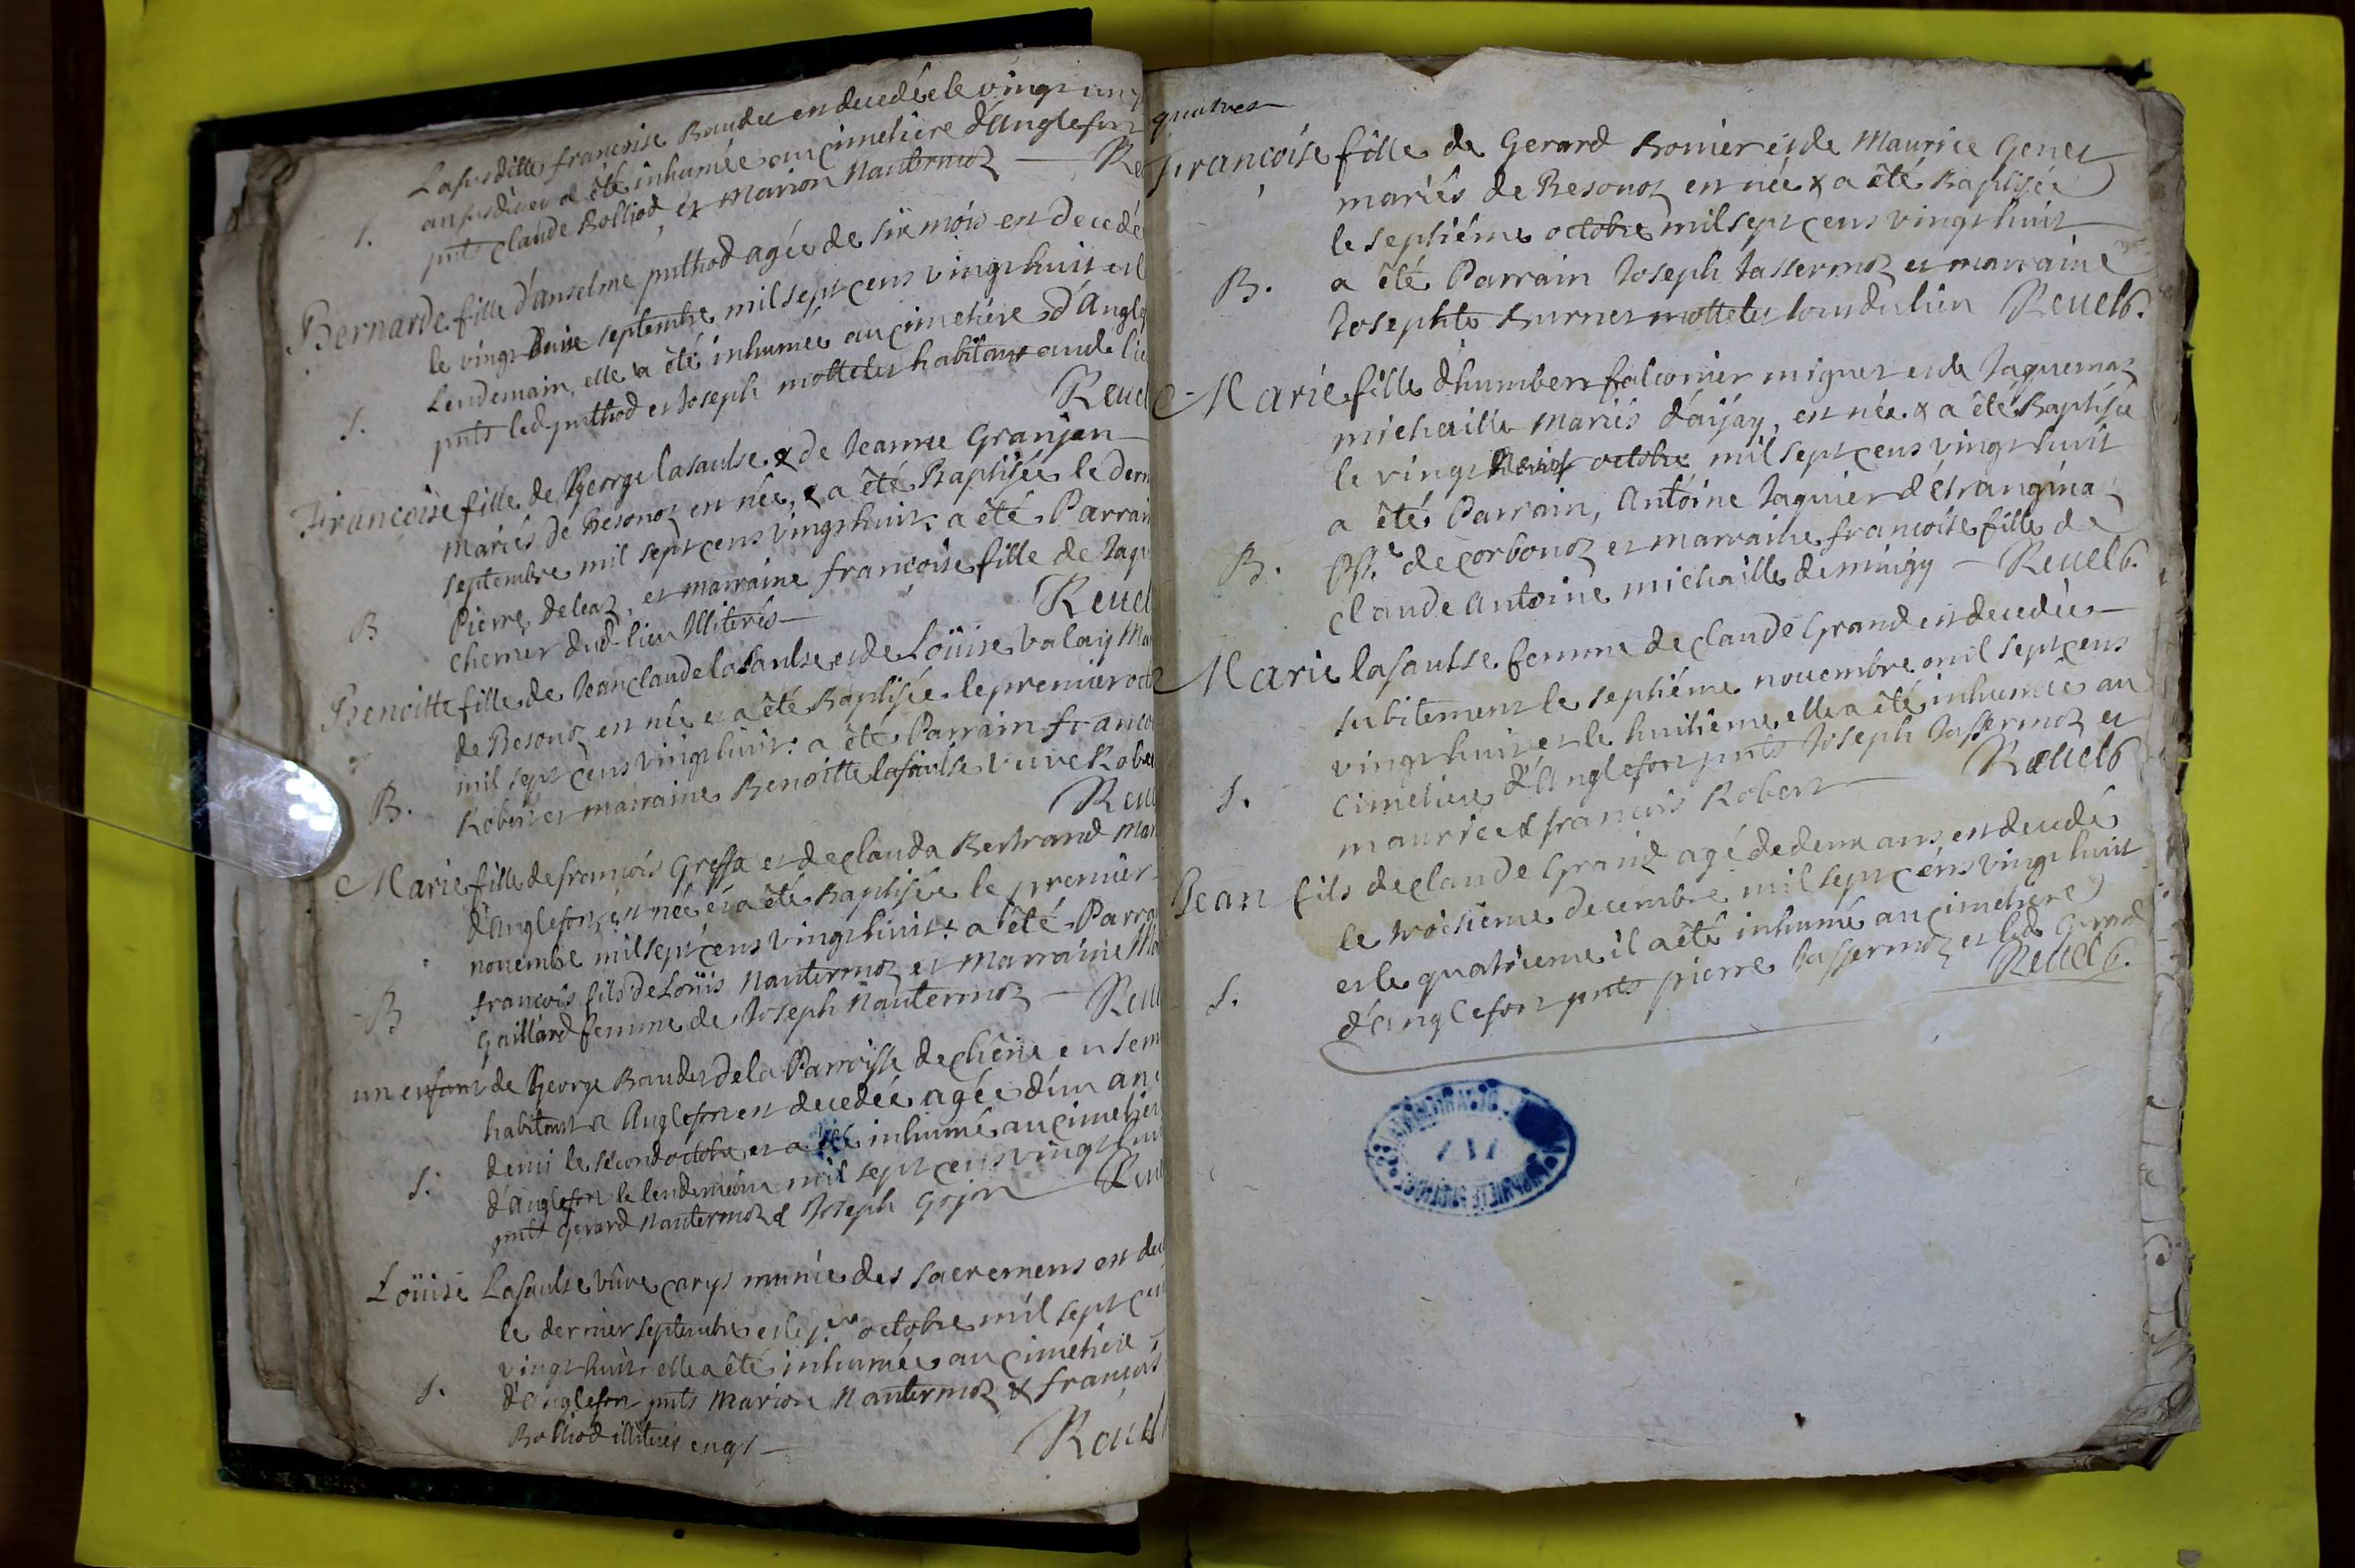 Lasusditte francoise Baudet est decedée le vingt un
an susdit et a été inhumée au cimetiere d'Anglefort
S.
pnts Claude Bolliod, et Marion Nantermoz — Re
Bernarde fille d'anselme puthod agée de six mois est decedé
le vingt septembre mil sept cens vingt huit et l
Lendemain, elle a été inhumée au cimetiere d'Angle
S.
pnts led puthod et Joseph mottetes habitans aud lie
Reuel
Francoise fille de George lasaulse & de Jeanne Granjan
mariés de Besonoz est née, & a été Baptisée le dern
septembre mil sept cens vingt huit: a été Parrain
B
Pierre Deleaz, et marraine francoise fille de Jaqu
Cherner dud lieu Illiterés —
Reuel
Benoitte fille de Jean claude lasaulse et de Loüise Valaij Mar
de Besonoz est née et a été Baptisée le premier octo
mil sept cens vingt huit: a été Parrain franco
B.
Robert et marraine Benoitte lasaulse vuve Robe
Reue
Marie fille de francois Greffa et de clauda Bertrand mar
d'Anglefort, est née et a été Baptisée le premier
novembre mil sept cens vingt huit: a été Parra
B
francois fils de Loüis Nantermoz et Marraine Ma
Gaillard femme de Joseph Nantermoz — Reue
un enfant de George Baudet de la Parroisse de chêne en sem
habitant a Anglefort est decedée agée d'un an e
demi le second octobre et a été inhumé au cimetier
S.
d'anglefort le lendemain mil sept cens vingt hui
pnts Gerard Nantermoz & Joseph Gojon Reue
Loüise Lasaulse vûve carys munie des sacremens est dec
le dernier septembre et le p.er octobre mil sept cen
vingt huit elle a été inhumée au cimetiere
S.
d'anglefort pnts Marion Nantermoz & francois
Bolliod illiterés enqs —
Reuel
quatres
Francoise fille de Gerard Bomier et de Maurice Genet
mariés de Besonoz est née & a été Baptisée
le septiéme octobre mil sept cens vingt huit
B.
a été Parrain Joseph Tassermoz et marraine
Josephte Burnet mottetes tous du lieu Reuel6.
Marie fille d'humbert falconier miguet et de Jaquemaz
michaille mariés d'aijay, est née & a été Baptisée
le vingt octobre mil sept cens vingt huit
a été Parrain, Antoine Jaquier d'étranginaz
B.
Pss.e de corbonoz et marraine francoise fille de
claude Antoine michaille demigy — Reuel6.
Marie lasaulse femme de claude Grand est decedée
subitement le septiéme novembre mil sept cens
vingt huit et le huitiéme elle a été inhumée au
S.
cimetiere d'Anglefort pnts Joseph Tassermoz et
maurice & francois Robert — Reuel6
Jean fils de claude Grand agé de deux ans, est decedé
le troisieme decembre mil sept cens vingt huit
et le quatrieme il a été inhumé au cimetiere
S.
d'anglefort pnts pierre Tassermoz et led Grand
Reuel6.